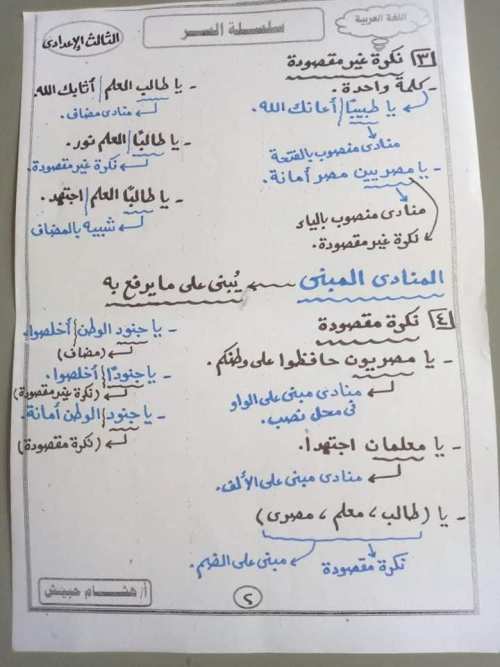 اللغة العربية
سلسلة السر
الثالث الإعدادى
٣ نكرة غير مقصودة
- كلمة واحدة.
يا طبيبًا/أعانك الله.
منادى منصوب بالفتحة
- يا مصريين مصر أمانة.
منادى منصوب بالياء
نكرة غير مقصودة.
- يا طالب العلم/أثابك الله.
منادى مضاف.
- يا طالبًا/العلم نور.
نكرة غير مقصودة.
- يا طالبًا العلم/اجتهد.
شبيه بالمضاف
المنادى المبنى ← يُبنى على ما يرفع به
٤ نكرة مقصودة
- يا مصريون حافظوا على وطنكم.
منادى مبنى على الواو
فى محل نصب.
- يا معلمان اجتهدا.
منادى مبنى على الألف.
- يا (طالب، معلم، مصرى)
نكرة مقصودة
مبنى على الضم.
- يا جنود الوطن/أخلصوا.
(مضاف)
- يا جنودًا/أخلصوا.
(نكرة غير مقصودة)
- يا جنود/الوطن أمانة.
(نكرة مقصودة)
أ/ هشام حبيش
٢